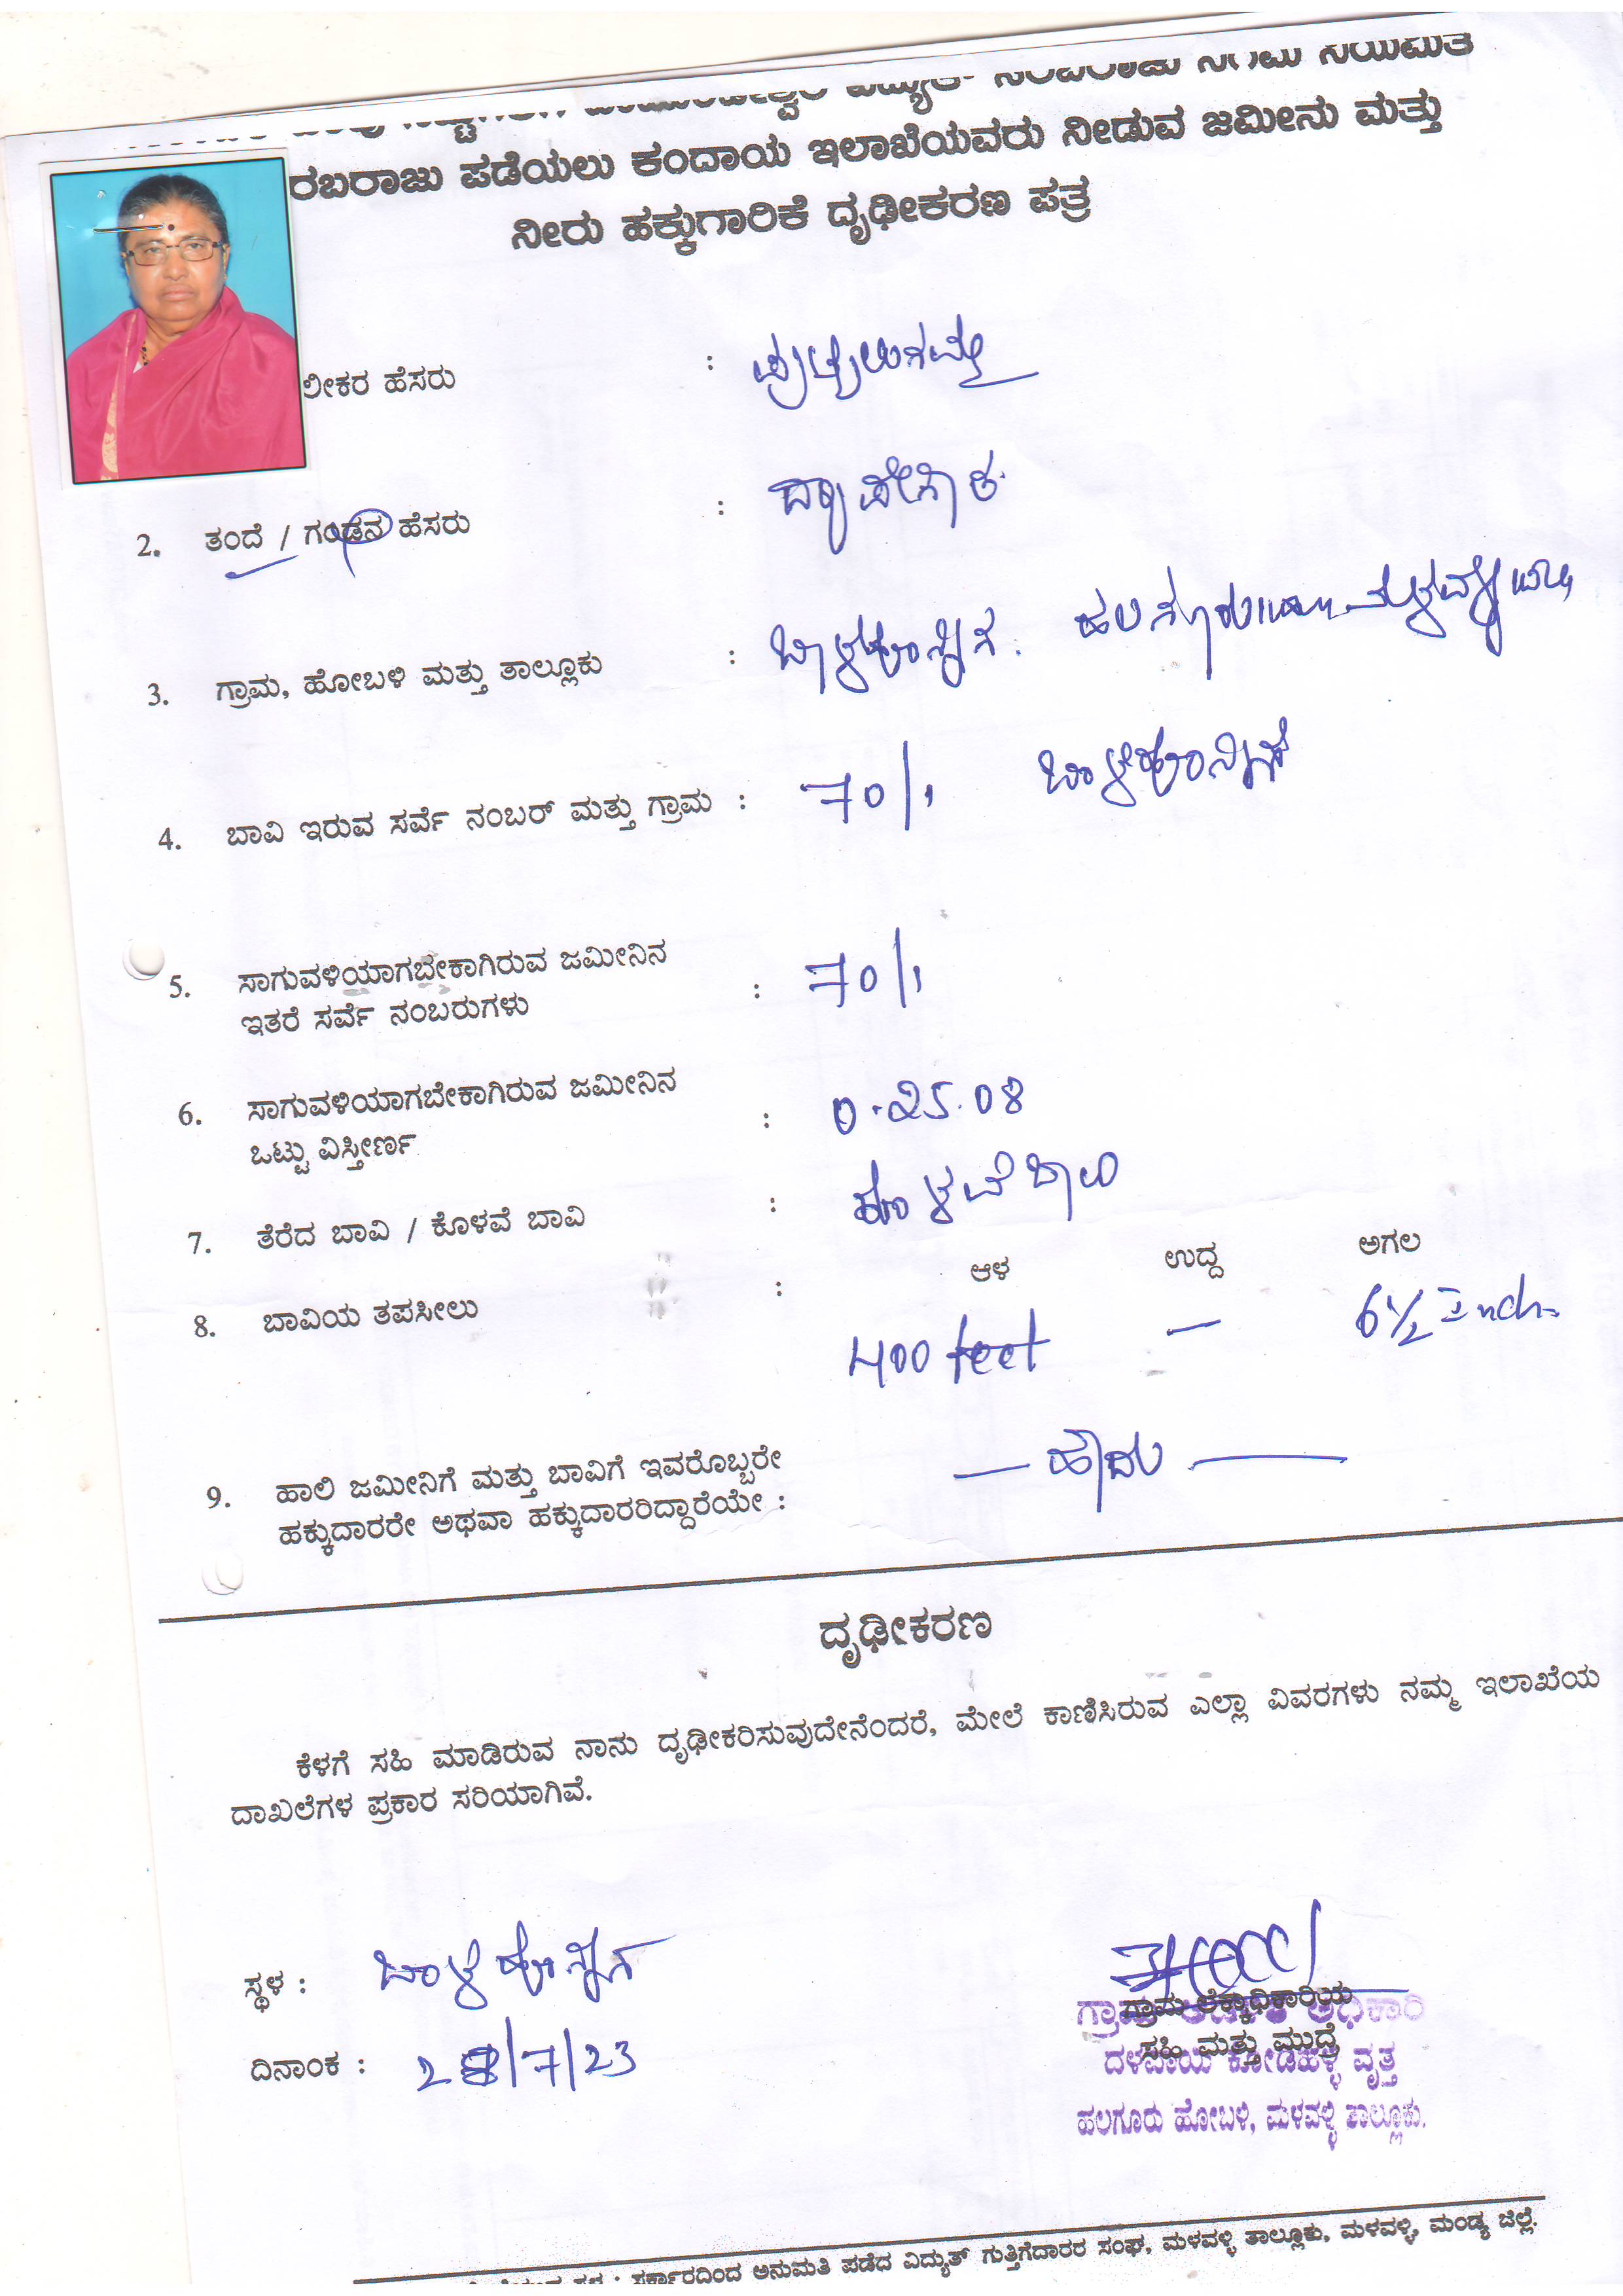 ವಿದ್ಯುತ್ ಸರಬರಾಜು ನಿಗಮ ನಿಯಮಿತ
ರಬರಾಜು ಪಡೆಯಲು ಕಂದಾಯ ಇಲಾಖೆಯವರು ನೀಡುವ ಜಮೀನು ಮತ್ತು
ನೀರು ಹಕ್ಕುಗಾರಿಕೆ ದೃಢೀಕರಣ ಪತ್ರ
ಲೀಕರ ಹೆಸರು :
2. ತಂದೆ / ಗಂಡನ ಹೆಸರು :
3. ಗ್ರಾಮ, ಹೋಬಳಿ ಮತ್ತು ತಾಲ್ಲೂಕು : ಬಾಳೆಹೊನ್ನಿಗ.
4. ಬಾವಿ ಇರುವ ಸರ್ವೆ ನಂಬರ್ ಮತ್ತು ಗ್ರಾಮ : 70/1 ಬಾಳೆಹೊನ್ನಿಗೆ
5. ಸಾಗುವಳಿಯಾಗಬೇಕಾಗಿರುವ ಜಮೀನಿನ
ಇತರೆ ಸರ್ವೆ ನಂಬರುಗಳು : 70/1
6. ಸಾಗುವಳಿಯಾಗಬೇಕಾಗಿರುವ ಜಮೀನಿನ
ಒಟ್ಟು ವಿಸ್ತೀರ್ಣ : 0.25.08
7. ತೆರೆದ ಬಾವಿ / ಕೊಳವೆ ಬಾವಿ : ಕೊಳವೆ ಬಾವಿ
8. ಬಾವಿಯ ತಪಸೀಲು : ಆಳ ಉದ್ದ ಅಗಲ
400 feet — 6½ Inch
9. ಹಾಲಿ ಜಮೀನಿಗೆ ಮತ್ತು ಬಾವಿಗೆ ಇವರೊಬ್ಬರೇ — ಹೌದು —
ಹಕ್ಕುದಾರರೇ ಅಥವಾ ಹಕ್ಕುದಾರರಿದ್ದಾರೆಯೇ :
ದೃಢೀಕರಣ
ಕೆಳಗೆ ಸಹಿ ಮಾಡಿರುವ ನಾನು ದೃಢೀಕರಿಸುವುದೇನೆಂದರೆ, ಮೇಲೆ ಕಾಣಿಸಿರುವ ಎಲ್ಲಾ ವಿವರಗಳು ನಮ್ಮ ಇಲಾಖೆಯ
ದಾಖಲೆಗಳ ಪ್ರಕಾರ ಸರಿಯಾಗಿವೆ.
ಸ್ಥಳ : ಬಾಳೆಹೊನ್ನಿಗ
ದಿನಾಂಕ : 28/7/23
ಗ್ರಾಮ ಲೆಕ್ಕಾಧಿಕಾರಿಯ
ಸಹಿ ಮತ್ತು ಮುದ್ರೆ
ಗ್ರಾಮ ಆಡಳಿತ ಅಧಿಕಾರಿ
ದಳವಾಯಿ ಕೋಡಿಹಳ್ಳಿ ವೃತ್ತ
ಹಲಗೂರು ಹೋಬಳಿ, ಮಳವಳ್ಳಿ ತಾಲ್ಲೂಕು.
ಸ್ಥಳ : ಸರ್ಕಾರದಿಂದ ಅನುಮತಿ ಪಡೆದ ವಿದ್ಯುತ್ ಗುತ್ತಿಗೆದಾರರ ಸಂಘ, ಮಳವಳ್ಳಿ ತಾಲ್ಲೂಕು, ಮಳವಳ್ಳಿ, ಮಂಡ್ಯ ಜಿಲ್ಲೆ.